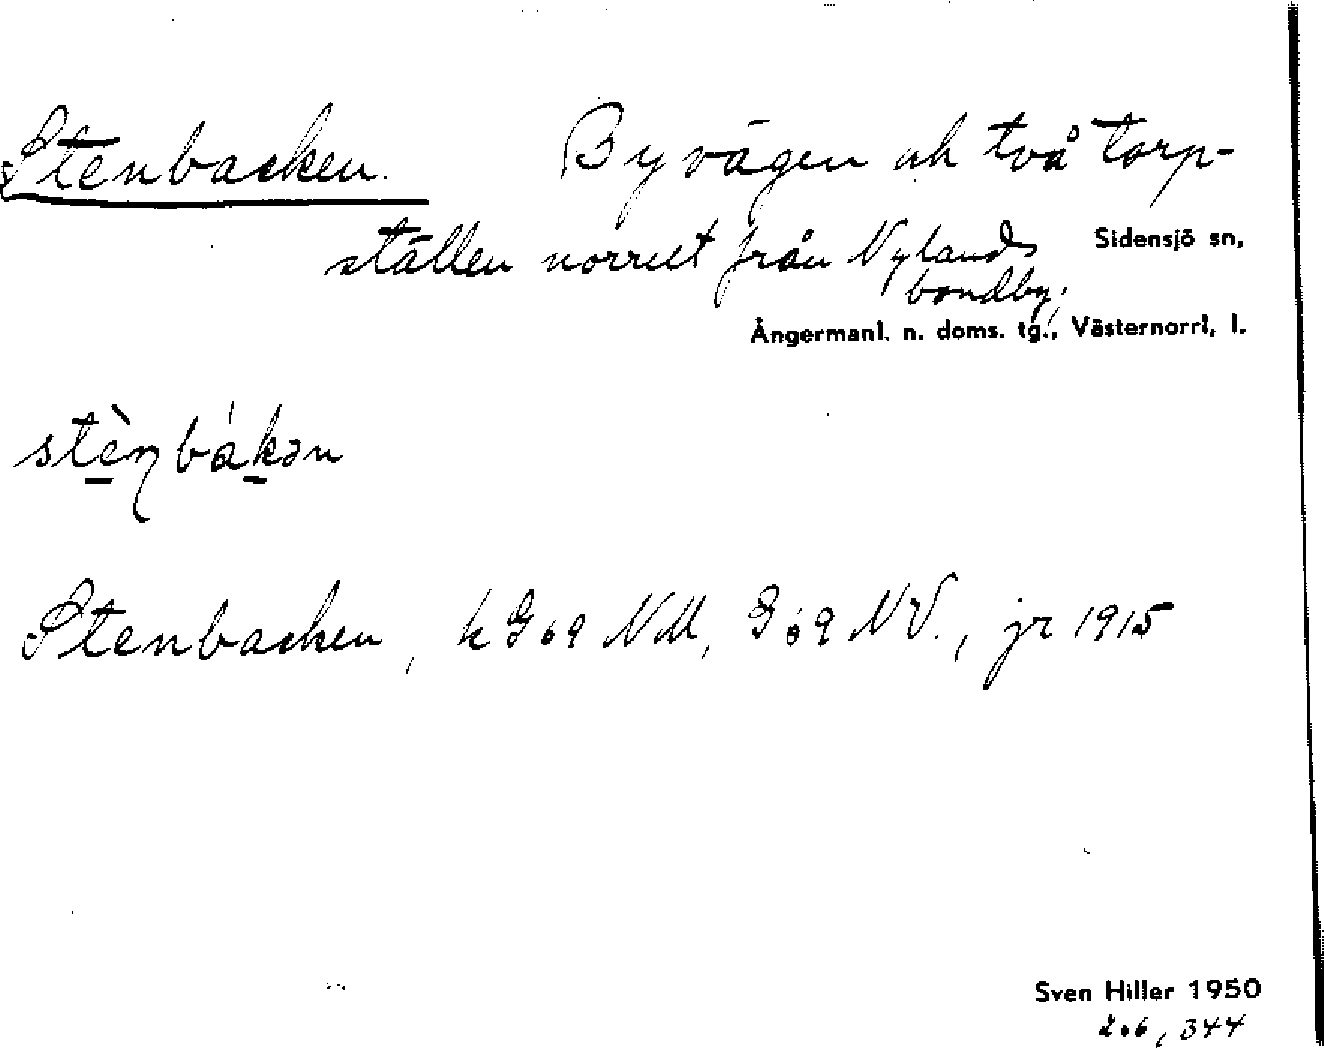 Stenbacken. Byvägen och två torp-
ställen norrut från Nylands
bondby.
Sidensjö sn,
Ångermanl. n. doms. tg., Västernorrl. l.
stèn̥bákən
Stenbacken, k G69 NM, G69 NV., jr 1915
Sven Hiller 1950
206, 344